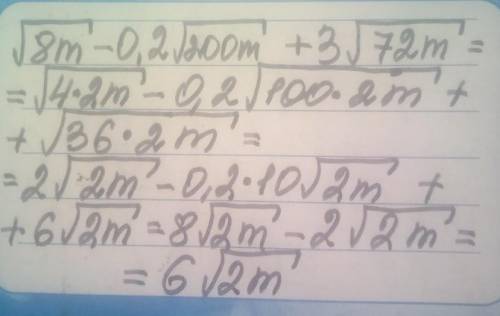 √8m - 0,2√200m + 3√72m =
= √4·2m - 0,2√100·2m +
+ √36·2m =
= 2√2m - 0,2·10√2m +
+ 6√2m = 8√2m - 2√2m =
= 6√2m